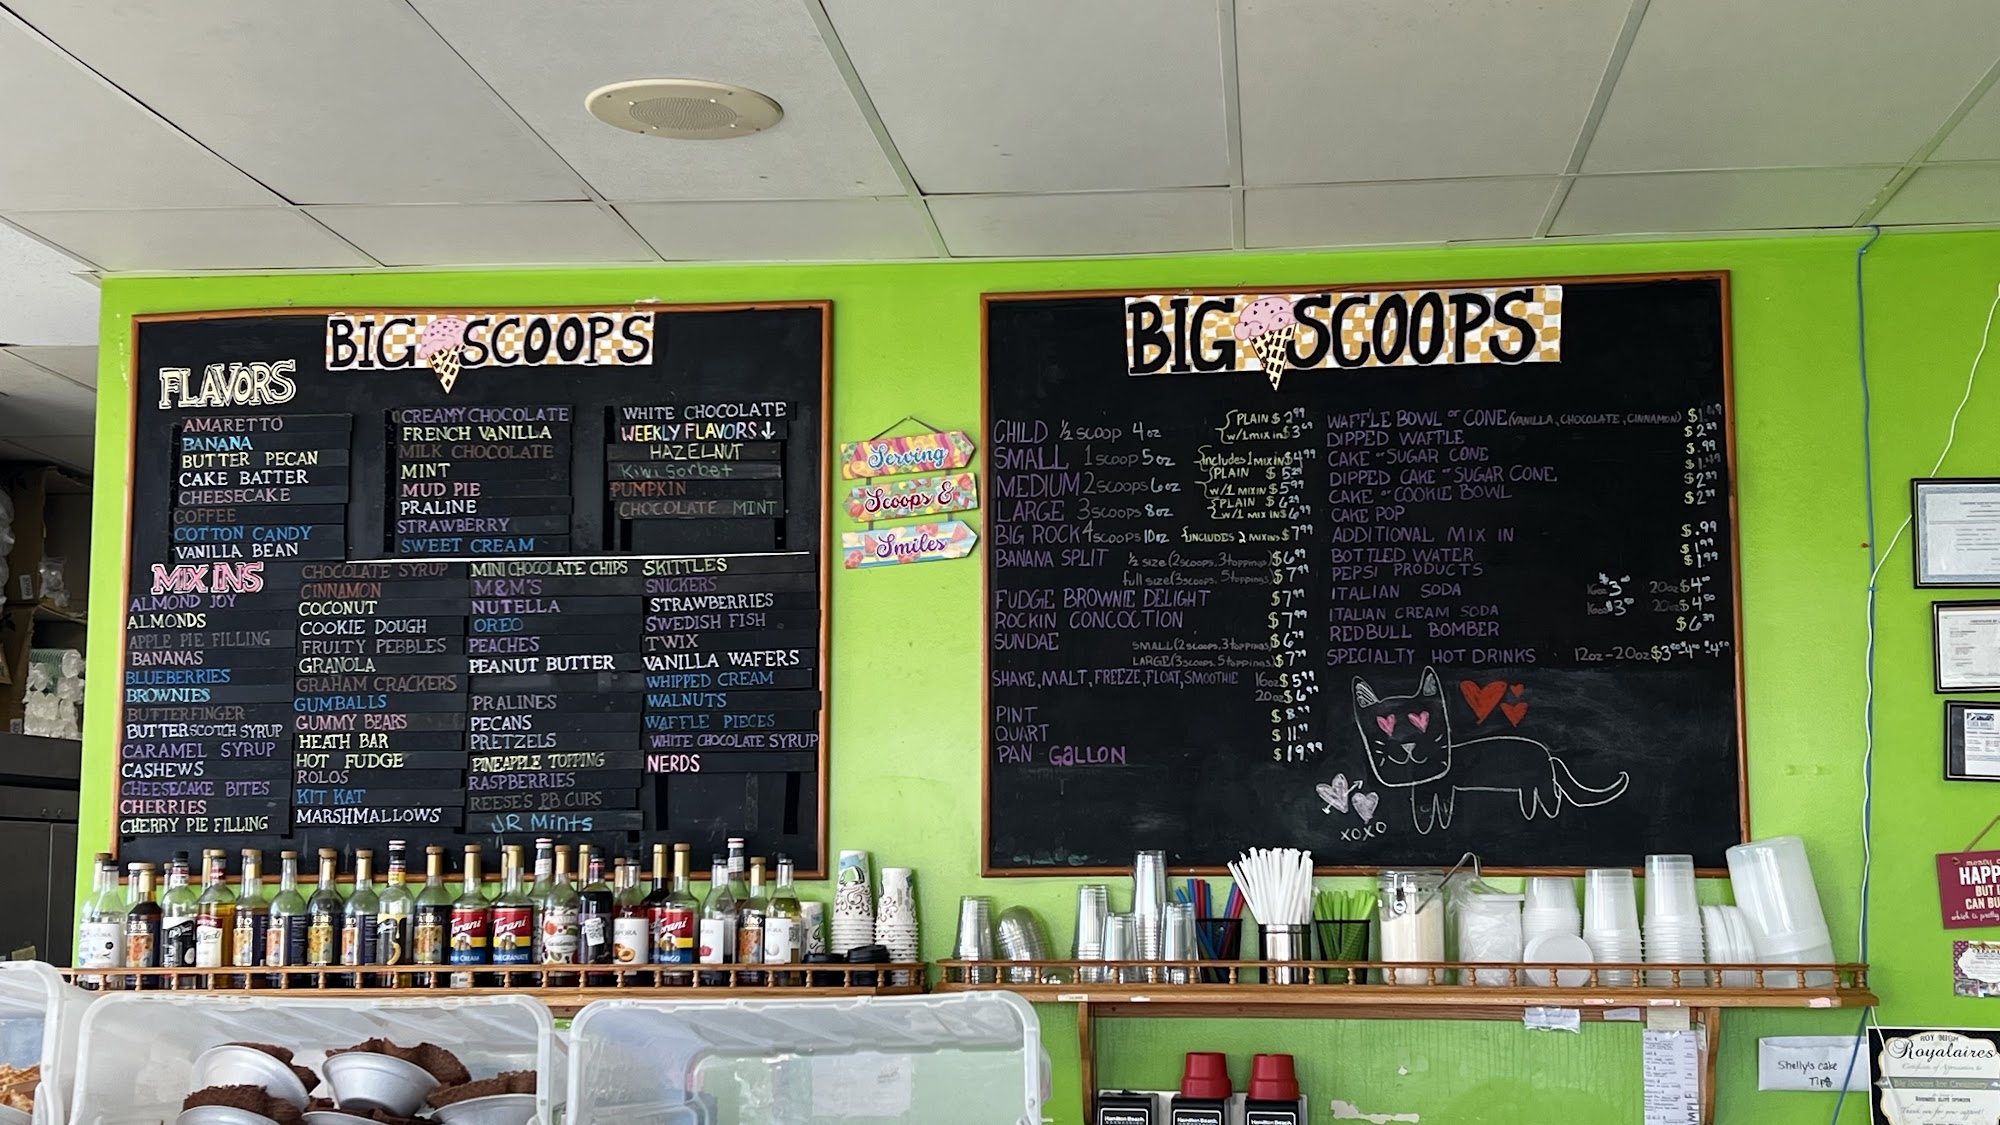 BIG SCOOPS
FLAVORS
AMARETTO
BANANA
BUTTER PECAN
CAKE BATTER
CHEESECAKE
COFFEE
COTTON CANDY
VANILLA BEAN
CREAMY CHOCOLATE
FRENCH VANILLA
MILK CHOCOLATE
MINT
MUD PIE
PRALINE
STRAWBERRY
SWEET CREAM
WHITE CHOCOLATE
WEEKLY FLAVORS ↓
HAZELNUT
Kiwi Sorbet
PUMPKIN
CHOCOLATE MINT
MIX INS
ALMOND JOY
ALMONDS
APPLE PIE FILLING
BANANAS
BLUEBERRIES
BROWNIES
BUTTERFINGER
BUTTERSCOTCH SYRUP
CARAMEL SYRUP
CASHEWS
CHEESECAKE BITES
CHERRIES
CHERRY PIE FILLING
CHOCOLATE SYRUP
CINNAMON
COCONUT
COOKIE DOUGH
FRUITY PEBBLES
GRANOLA
GRAHAM CRACKERS
GUMBALLS
GUMMY BEARS
HEATH BAR
HOT FUDGE
ROLOS
KIT KAT
MARSHMALLOWS
MINI CHOCOLATE CHIPS
M&M'S
NUTELLA
OREO
PEACHES
PEANUT BUTTER
PRALINES
PECANS
PRETZELS
PINEAPPLE TOPPING
RASPBERRIES
REESE'S PB CUPS
JR Mints
SKITTLES
SNICKERS
STRAWBERRIES
SWEDISH FISH
TWIX
VANILLA WAFERS
WHIPPED CREAM
WALNUTS
WAFFLE PIECES
WHITE CHOCOLATE SYRUP
NERDS
Serving
Scoops &
Smiles
BIG SCOOPS
CHILD ½ SCOOP 4oz PLAIN $2.99
w/1 mix in $3.69
SMALL 1 SCOOP 5oz includes 1 MIXIN $4.99
MEDIUM 2 SCOOPS 6oz PLAIN $5.29
W/1 MIXIN $5.99
LARGE 3 SCOOPS 8oz PLAIN $6.29
W/1 MIXIN $6.99
BIG ROCK 4 SCOOPS 10oz INCLUDES 2 MIXINS $7.99
BANANA SPLIT ½ SIZE (2 scoops, 3 toppings) $6.99
full size (3 scoops, 5 toppings) $7.99
FUDGE BROWNIE DELIGHT $7.99
ROCKIN CONCOCTION $7.99
SUNDAE SMALL (2 scoops, 3 toppings) $6.79
LARGE (3 scoops, 5 toppings) $7.99
SHAKE, MALT, FREEZE, FLOAT, SMOOTHIE 16oz $5.99
20oz $6.99
PINT $8.99
QUART $11.99
PAN - GALLON $19.99
WAFFLE BOWL or CONE (VANILLA, CHOCOLATE, CINNAMON) $1.49
DIPPED WAFFLE $2.29
CAKE or SUGAR CONE $.99
DIPPED CAKE or SUGAR CONE $1.49
CAKE or COOKIE BOWL $2.99
CAKE POP $2.99
ADDITIONAL MIX IN $.99
BOTTLED WATER $1.99
PEPSI PRODUCTS $1.99
ITALIAN SODA 16oz $3.00 20oz $4.00
ITALIAN CREAM SODA 16oz $3.50 20oz $4.50
REDBULL BOMBER $6.39
SPECIALTY HOT DRINKS 12oz-20oz $3.50 $4.00 $4.50
XOXO
Torani
Torani
Torani
HAPP
BUT I
CAN BU
Shelly's cake
Tips
ROY HIGH
Royalaires
Certificate of Appreciation to
Big Scoops Ice Creamery
Thank you for your support!
Hamilton Beach
Hamilton Beach
Hamilton Beach